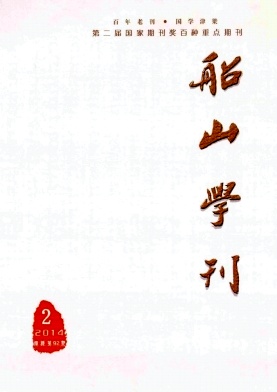 百年老刊 • 国学津梁
第二届国家期刊奖百种重点期刊
船山學刊
2
2014
总第92期